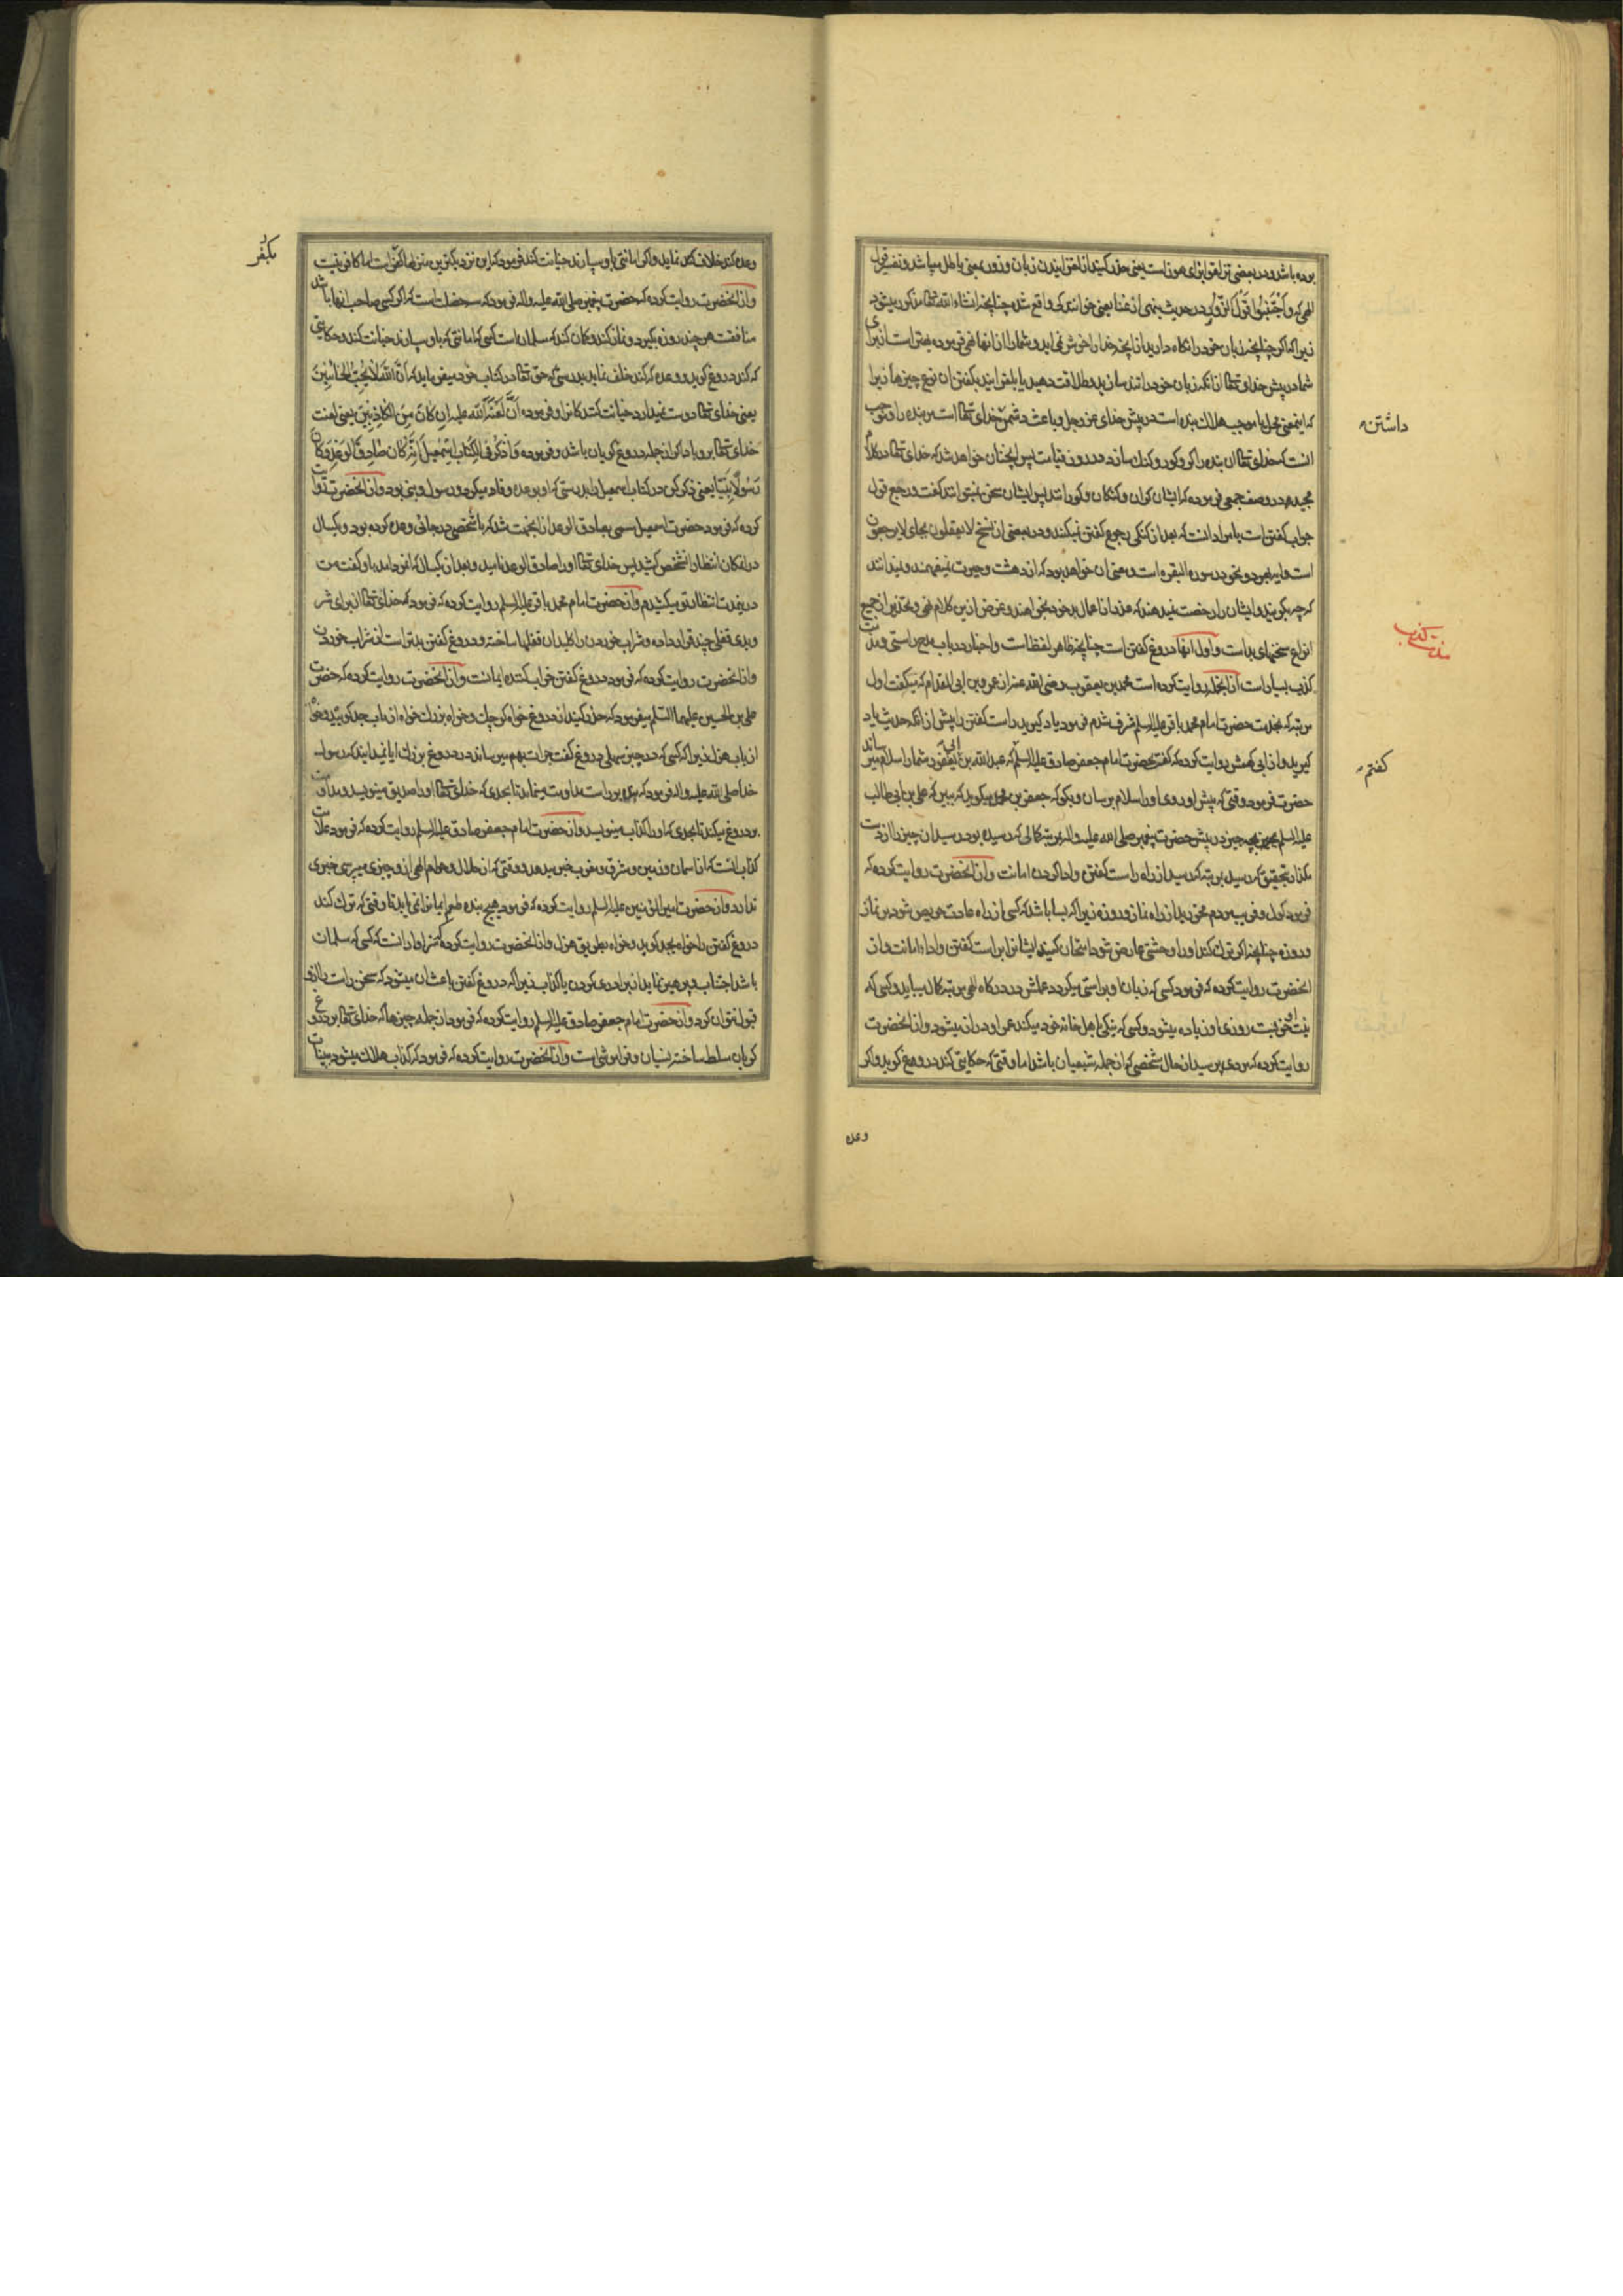 بوده باشد و در بعضی تزلقوا بزای هوز است یعنی حذر کنید از لغزانیدن زبان و زور بمعنی باطل میباشد و تفسیر قول
الهی که واجتنبوا قول الزور در حدیث بنهی از غنا یعنی خوانندگی واقع شده چنانچه انشاء الله تعالی مذکور میشود
زیرا که اگر چنانچه زبان خود را نگاه دارید از آنچه خدا را خوش نمی اید و شما را از انها نهی فرموده بهتر است از برای
شما در پیش خدای تعالی از انکه زبان خود را تند سازید و طلاقت دهید یا بلغزانید بکفتن ان نوع چیزها زیرا
که اینمعنی محل یا موجب هلاک بنده است در پیش خدای عز و جل و باعث دشمنی خدای تعالی است بر بنده را و موجب
داشتن
انست که خدای تعالی ان بنده را کر و کور و کنک سازد در روز قیامت پس انچنان خواهد شد که خدای تعالی در کلام
مجید در وصف جمعی فرموده که ایشان کران و کنکان و کورانند پس ایشان سخن نمیتوانند کفت و رجع قول
جواب کفتن است یا مراد انست که بعد از کنکی رجوع کفتن نمیکنند و در بعضی از نسخ لا یعقلون بجای لا یرجعون
است و این هر دو نحو در سوره البقره است و معنی ان خواهد بود که از دهشت و حیرت نمیفهمند و نمیدانند
که چه بکویند و ایشان را رخصت نمیدهند که عذر از اعمال بد خود بخواهند و غرض از این کلام نهی و تحذیر از جمیع
انواع سخنهای بد است و اول انها دروغ کفتن است چنانچه ظاهر لفظ است و اخبار در باب مدح راستی و مذمت
مذمت کذب
کذب بسیار است از انجمله روایت کرده است محمد بن یعقوب رضی الله عنه از عمرو بن ابی المقدام که میکفت اول
مرتبه که بخدمت حضرت امام محمد باقر علیه السلم مشرف شدم فرمود یاد کیرید راست کفتن را پیش از انکه حدیث یاد
کیرید و از ابی کهمش روایت کرده که کفت بحضرت امام جعفر صادق علیه السلم که عبد الله بن ابی یعفور شما را سلام میرساند
کفتم
حضرت فرمود وقتی که پیش او روی او را سلام برسان و بکو که جعفر بن محمد میکوید که ببین که علی بن ابی طالب
علیه السلم بچه چیز در پیش حضرت پیغمبر صلی الله علیه و اله بمرتبه کمالی که رسیده بود رسید ان چیز را از دست
مکذار بتحقیق که رسید بمرتبه که رسید از راه راست کفتن و ادا کردن امانت و از انحضرت روایت کرده که
فرمود کول و فریب مردم مخورید از راه نماز و روزه زیرا که بسا باشد که کسی از راه عادت حریص شود بر نماز
و روزه چنانچه اگر ترک کند او را وحشتی عارض شود امتحان کنید ایشانرا براست کفتن و اداء امانت و از
انحضرت روایت کرده که فرمود کسی که زبان او براستی میکردد عملش در درکاه الهی بمرتبه کمال میباید و کسی که
نیت او خوبست روزی او زیاده میشود و کسی که نیکی باهل خانه خود میکند عمر او دراز میشود و از انحضرت
روایت کرده که مردی پرسید از حال شخصی که از جمله شیعیان باشد اما وقتی که حکایتی کند دروغ کوید و اکر
وعده
وعده کند خلاف کند نماید و اکر امانتی باو سپارند خیانت کند فرمود که این نزدیکترین منزلها کفر است اما کافر نیست
بکفر
و از انحضرت روایت کرده که حضرت پیغمبر صلی الله علیه و اله فرمود که سه خصلت است که اگر کسی صاحب انها باشد
منافقست هر چند روزه بکیرد و نماز کند و کمان کند که مسلمان است کسی که امانتی که باو سپارند خیانت کند و حکایتی
که کند دروغ کوید و وعده که کند خلف نماید بدرستی که حق تعالی در کتاب خود میفرماید که ان الله لا یحب الخائنین
یعنی خدای تعالی دوست نمیدارد خیانت کنندکانرا و فرموده ان لعنة الله علیه ان کان من الکاذبین یعنی لعنت
خدای تعالی بر او باد اکر از جمله دروغ کویان باشد و فرموده و اذکر فی الکتاب اسمعیل انه کان صادق الوعد و کان
رسولا نبیا یعنی ذکر کن در کتاب اسمعیل را بدرستی که او بوعده وفا میکرد و رسول و نبی بود و از انحضرت روایت
کرده که فرمود حضرت اسمعیل مسمی بصادق الوعد از انجهت شد که با شخصی در جائی وعده کرده بود و یکسال
در انمکان انتظار انشخص کشید پس خدای تعالی او را صادق الوعد نامید و بعد از یکسال که انمرد امد باو کفت من
در اینمدت انتظار تو میکشیدم و از حضرت امام محمد باقر علیه السلم روایت کرده که فرمود که خدای تعالی از برای شر
و بدی قفلی چند قرار داده و شراب خوردن را کلید ان قفلها ساخته و دروغ کفتن بدتر است از شراب خوردن
و از انحضرت روایت کرده که فرمود دروغ کفتن خراب کننده ایمانست و از انحضرت روایت کرده که حضرت
علی بن الحسین علیهما السلم میفرمود که حذر کنید از دروغ خواه کوچک و خواه بزرک خواه از باب جد کویید و خواه
از باب هزل زیرا که کسی که در چیز سهلی دروغ کفت جرات بهم میرساند در دروغ بزرک ایا نمیدانید که رسول
خدا صلی الله علیه و اله فرمود که بنده بر راست مداومت مینماید تا بحدی که خدای تعالی او را صدیق مینویسد و مداومت
بر دروغ میکند تا بحدی که او را کذاب مینویسد و از حضرت امام جعفر صادق علیه السلم روایت کرده که فرمود علامت
کذاب انست که از اسمان و زمین و مشرق و مغرب خبر میدهد و وقتی که از حلال و حرام الهی از و چیزی میپرسی خبری
ندارد و از حضرت امیر المؤمنین علیه السلم روایت کرده که فرمود هیچ بنده طعم ایمانرا نمی یابد تا وقتی که ترک کند
دروغ کفتن را خواه بجد کوید و خواه بطریق هزل و از انحضرت روایت کرده که سزاوار انست که کسی که مسلمان
باشد اجتناب و پرهیز نماید از برادری کردن با کذاب زیرا که دروغ کفتن باعث ان میشود که سخن راست را از و
قبول نتوان کرد و از حضرت امام جعفر صادق علیه السلم روایت کرده که فرمود از جمله چیزها که خدای تعالی بر دروغ
کویان مسلط ساخته نسیان و فراموشی است و از انحضرت روایت کرده که فرمود که کذاب هلاک میشود ببینات